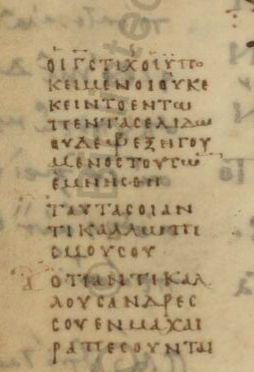 ΟΙΓϹΤΙΧΟΙΫΠΟ
ΚΕΙΜΕΝΟΙΟΥΚΕ
ΚΕΙΝΤΟΕΝΤΩ
ΠΕΝΤΑϹΕΛΙΔΩ
ΟΥΔΕΩΡΕΞΗΓΟΥ
ΜΕΝΟϹΤΟΥΤΩ
ΕΜΝΗϹΘΗ
ΤΑΥΤΑϹΟΙΑΝ
ΤΙΚΑΛΛΩΠΙ
ϹΜΟΥϹΟΥ
ΟΤΙΑΝΤΙΚΑΛ
ΛΟΥϹΑΝΔΡΕϹ
ϹΟΥΕΝΜΑΧΑΙ
ΡΑΠΕϹΟΥΝΤΑΙ